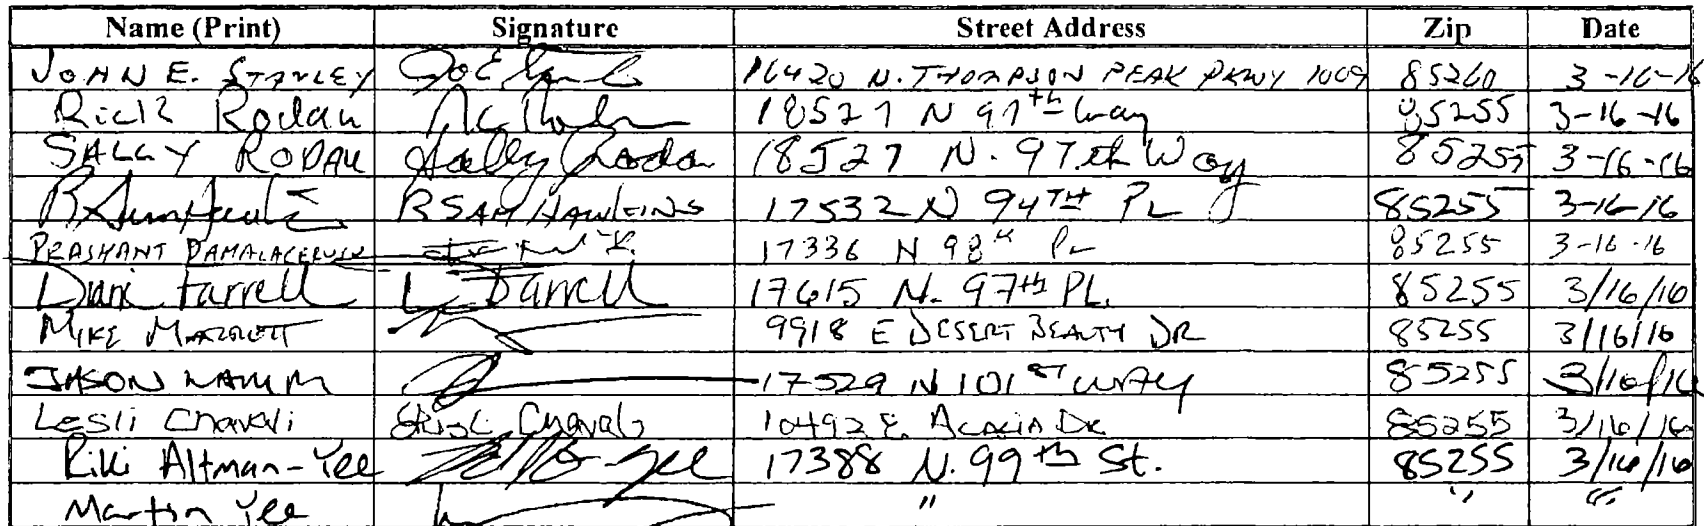 Name (Print) Signature Street Address Zip Date
JOHN E. STANLEY 16420 N. THOMPSON PEAK PKWY 1009 85260 3-16-16
Rick Rodau 18527 N 97th Way 85255 3-16-16
SALLY RODAU Sally Rodau 18527 N. 97th Way 85255 3-16-16
R SAM HAWKINS 17532 N 94TH PL 85255 3-16-16
PRASHANT 17336 N 98th PL 85255 3-16-16
Farrell Farrell 17615 N. 97th PL. 85255 3/16/16
MIKE 9918 E DESERT BEAUTY DR 85255 3/16/16
JASON LAMM 17529 N 101ST WAY 85255 3/16/16
Lesli Chavali Chavali 10492 E. ACACIA DR 85255 3/16/16
Riki Altman-Yee 17388 N. 99th St. 85255 3/16/16
Martin Yee " " "